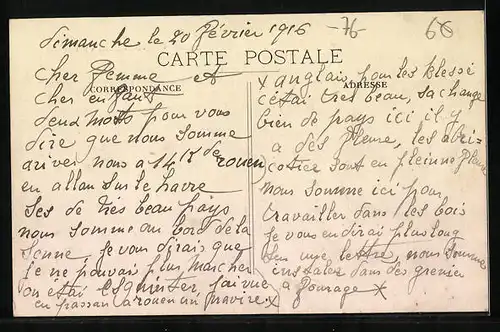 Dimanche le 20 Février 1916
-76
66
CARTE POSTALE
CORRESPONDANCE
ADRESSE
Cher femme et
cher enfant
deux mots pour vous
dire que nous somme
ariver nous a 14 K de rouen
en allan sur le havre
Ses de très beau pays
nous somme au bord de la
Senne, je vous dirais que
je ne pouvais plus marcher
on étai esquinter, j'ai vue
en passan a rouen un navire x
x anglais pour les blessé
cétai très beau, sa change
bien de pays ici il y
a des fleure, les abri-
cotier sont en pleinne fleure
nous somme ici pour
travailler dans les bois
je vous en dirai plus long
sur une lettre, nous somme
instaler dans des grenier
a fourage x